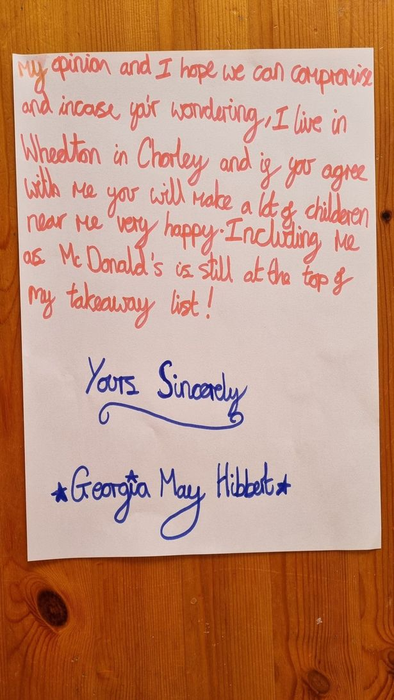 My opinion and I hope we can compromise
and incase ya'r wondering, I live in
Wheelton in Chorley and if you agree
with me you will make a lot of childeren
near me very happy. Including me
as Mc Donald's is still at the top of
my takeaway list!
Yours Sincerely
★Georgia May Hibbert★